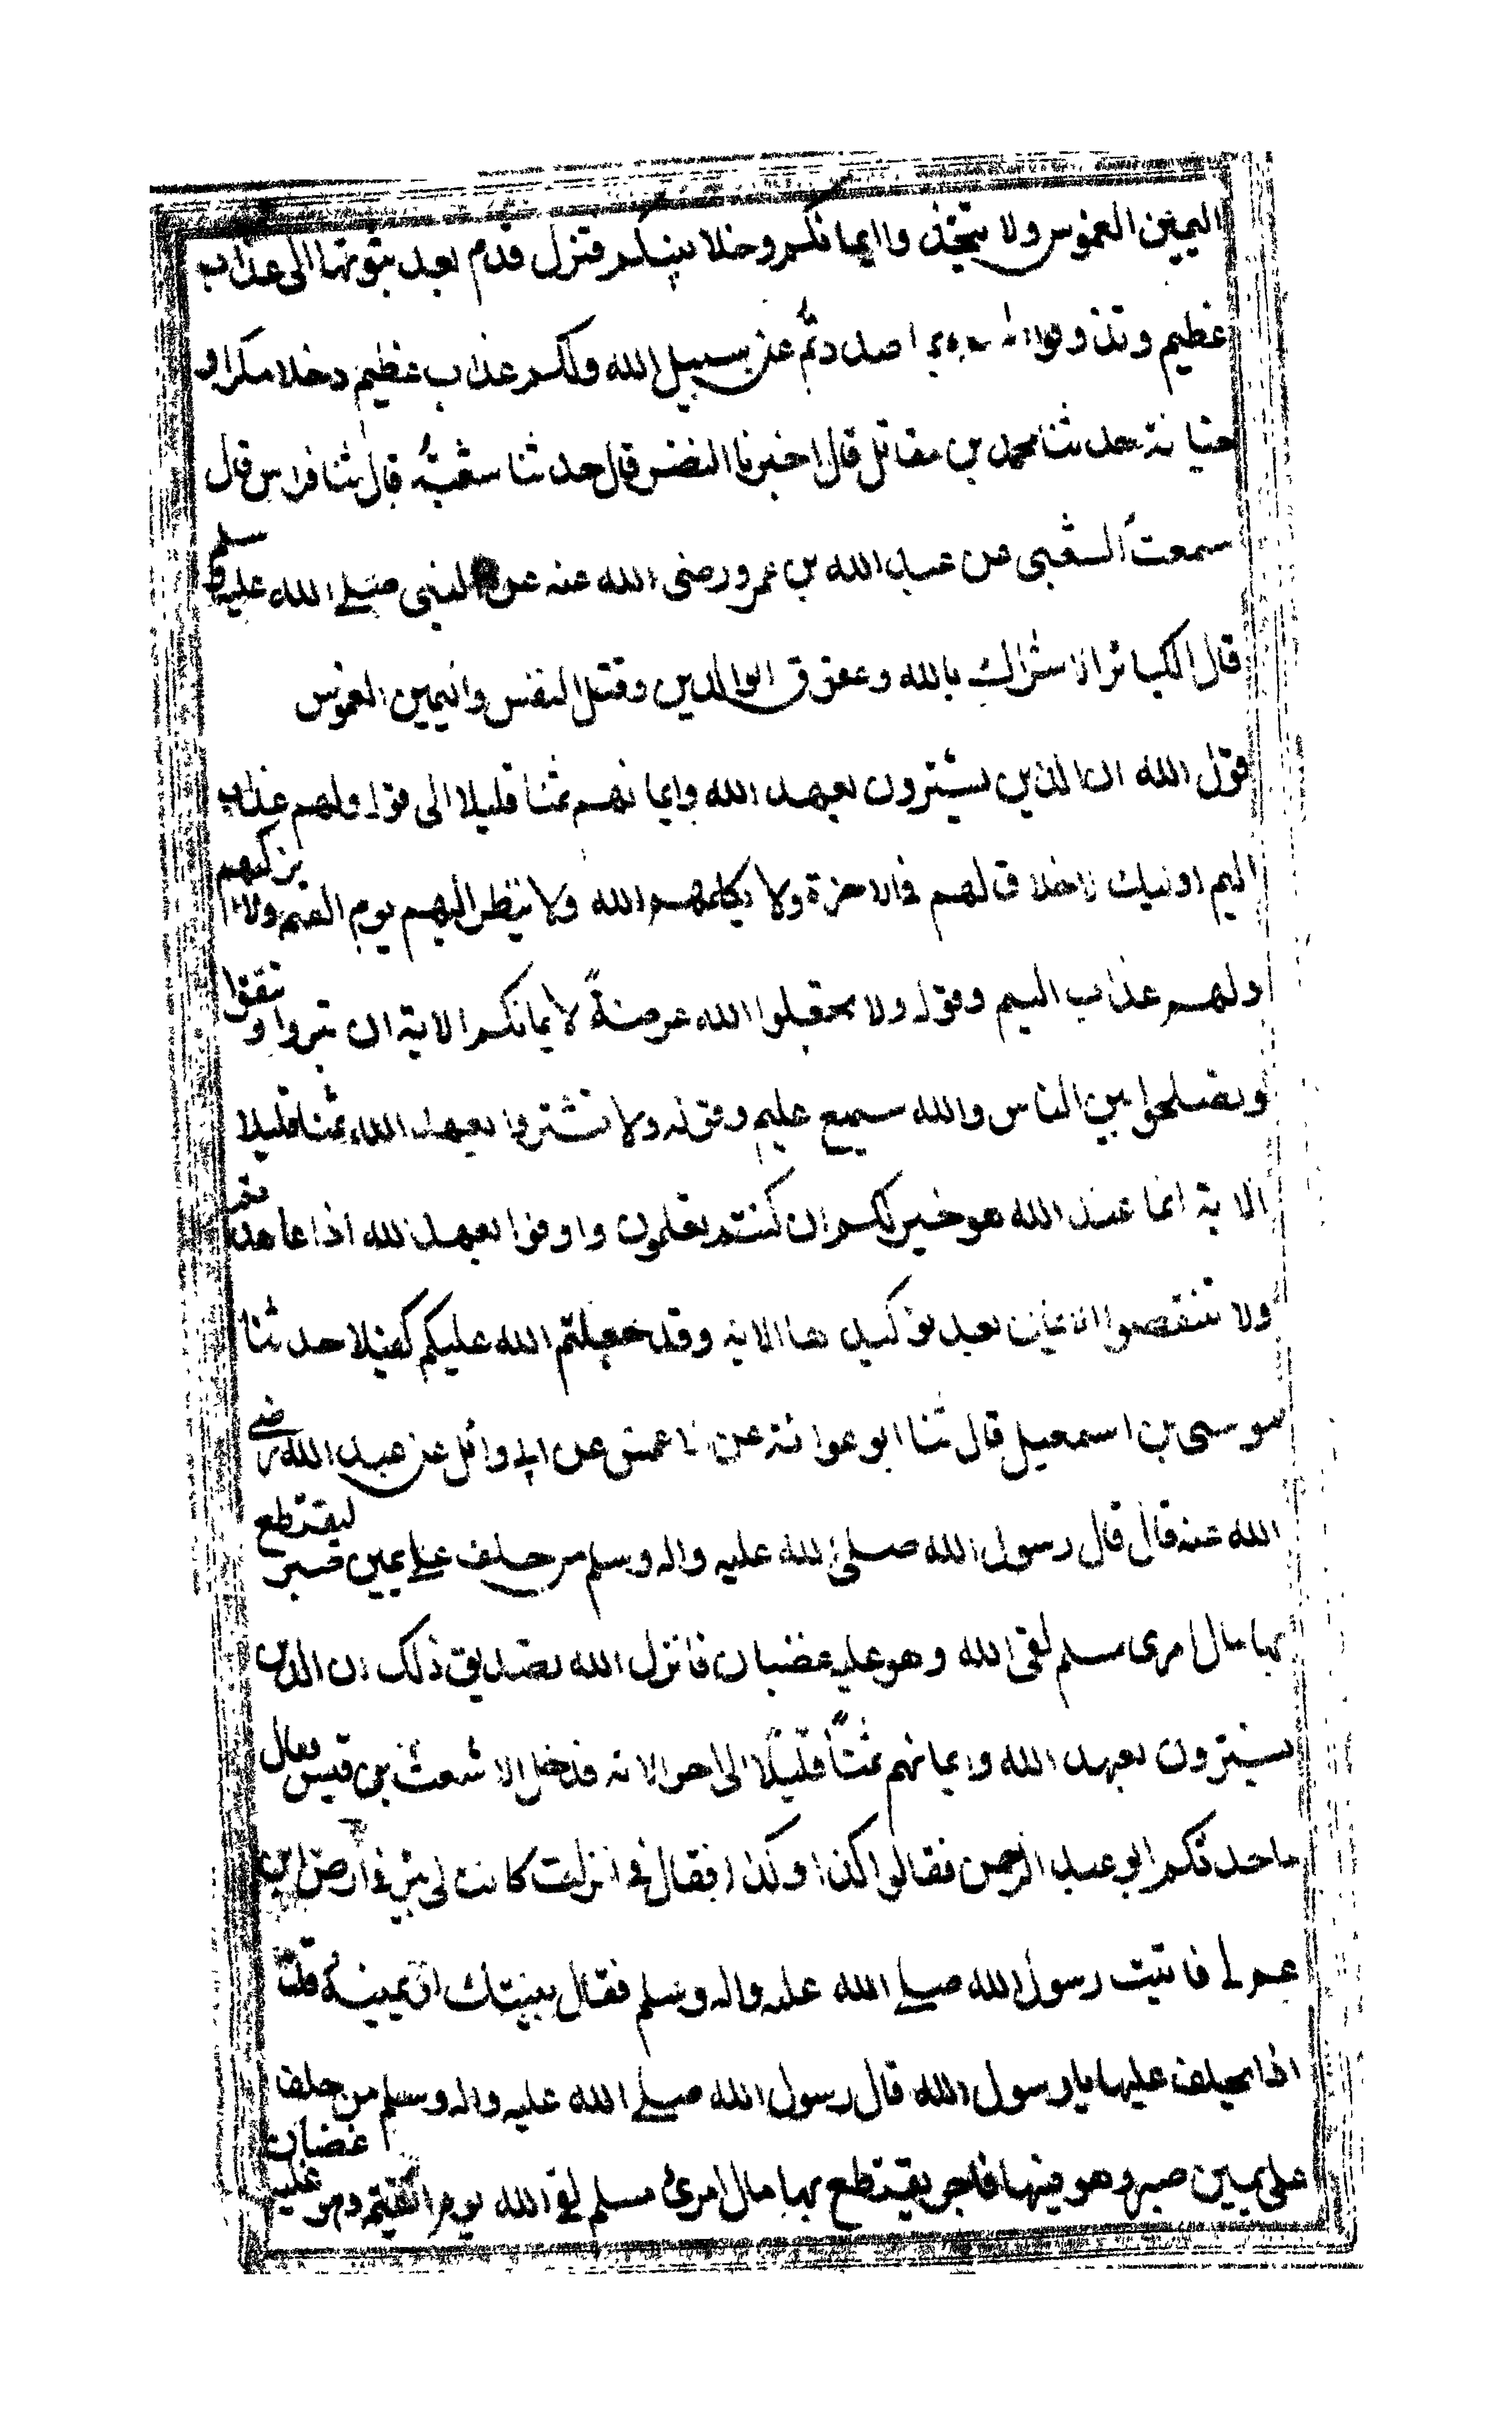 اليمين الغموس ولا تتخذوا ايمانكم دخلا بينكم فتزل قدم بعد ثبوتها الى عذاب
عظيم وتذوقوا بما صددتم عن سبيل الله ولكم عذاب عظيم دخلا مكرا و
خيانة حدثنا محمد بن مقاتل قال اخبرنا النضر قال حدثنا شعبة قال ثنا فراس قال
سمعت الشعبى عن عبد الله بن عمرو رضى الله عنه عن النبى صلى الله عليه وسلم
قال الكبائر الاشراك بالله وعقوق الوالدين وقتل النفس واليمين الغموس
قول الله ان الذين يشترون بعهد الله وايمانهم ثمنا قليلا الى قوله ولهم عذاب
اليم اولئك لا خلاق لهم فى الاخرة ولا يكلمهم الله ولا ينظر اليهم يوم القيمة ولا يزكيهم
ولهم عذاب اليم وقوله ولا تجعلوا الله عرضةً لايمانكم الاية ان تبروا وتتقوا
وتصلحوا بين الناس والله سميع عليم وقوله ولا تشتروا بعهد الله ثمنا قليلا
الاية انما عند الله هو خير لكم ان كنتم تعلمون واوفوا بعهد الله اذا عاهدتم
ولا تنقضوا الايمان بعد توكيدها الاية وقد جعلتم الله عليكم كفيلا حدثنا
موسى بن اسمعيل قال ثنا ابو عوانة عن الاعمش عن ابى وائل عن عبد الله رضى
الله عنه قال قال رسول الله صلى الله عليه واله وسلم من حلف على يمين صبر ليقتطع
بها مال امرى مسلم لقى الله وهو عليه غضبان فانزل الله تصديق ذلك ان الذين
يشترون بعهد الله وايمانهم ثمناً قليلاً الى اخر الاية فدخل الاشعث بن قيس فقال
ماحدثكم ابو عبد الرحمن فقالوا كذا وكذا فقال فى انزلت كانت لى بئر فى ارض ابن
عم لى فاتيت رسول الله صلى الله عليه واله وسلم فقال بينتك او يمينه قلت
اذا يحلف عليها يا رسول الله قال رسول الله صلى الله عليه واله وسلم من حلف
على يمين صبر وهو فيها فاجر يقتطع بها مال امرئ مسلم لقى الله يوم القيمة وهو عليه غضبان